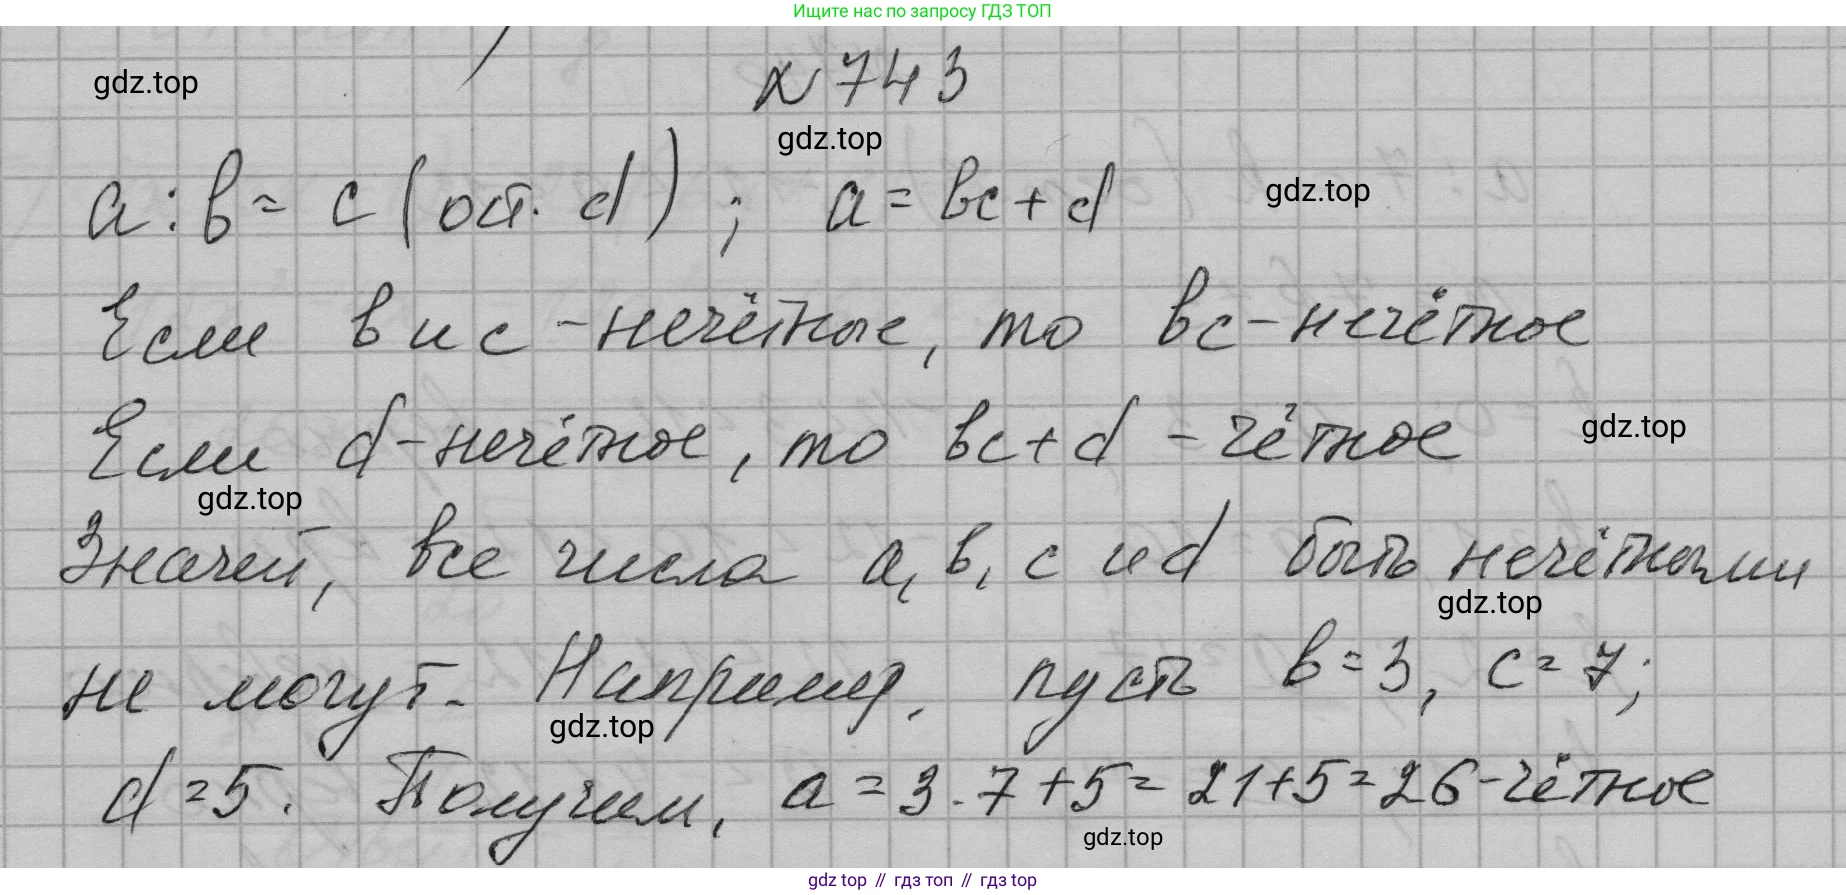 Ищите нас по запросу ГДЗ ТОП
№ 743
gdz.top
gdz.top
a : b = c (ост. d) ; a = bc + d
gdz.top
Если b и c - нечётные, то bc - нечётное
Если d - нечётное, то bc + d - чётное
gdz.top
gdz.top
Значит, все числа a, b, c и d быть нечётными
gdz.top
не могут. Например, пусть b = 3, c = 7;
gdz.top
d = 5. Получим, a = 3 . 7 + 5 = 21 + 5 = 26 - чётное
gdz.top
gdz top // гдз топ // гдз top